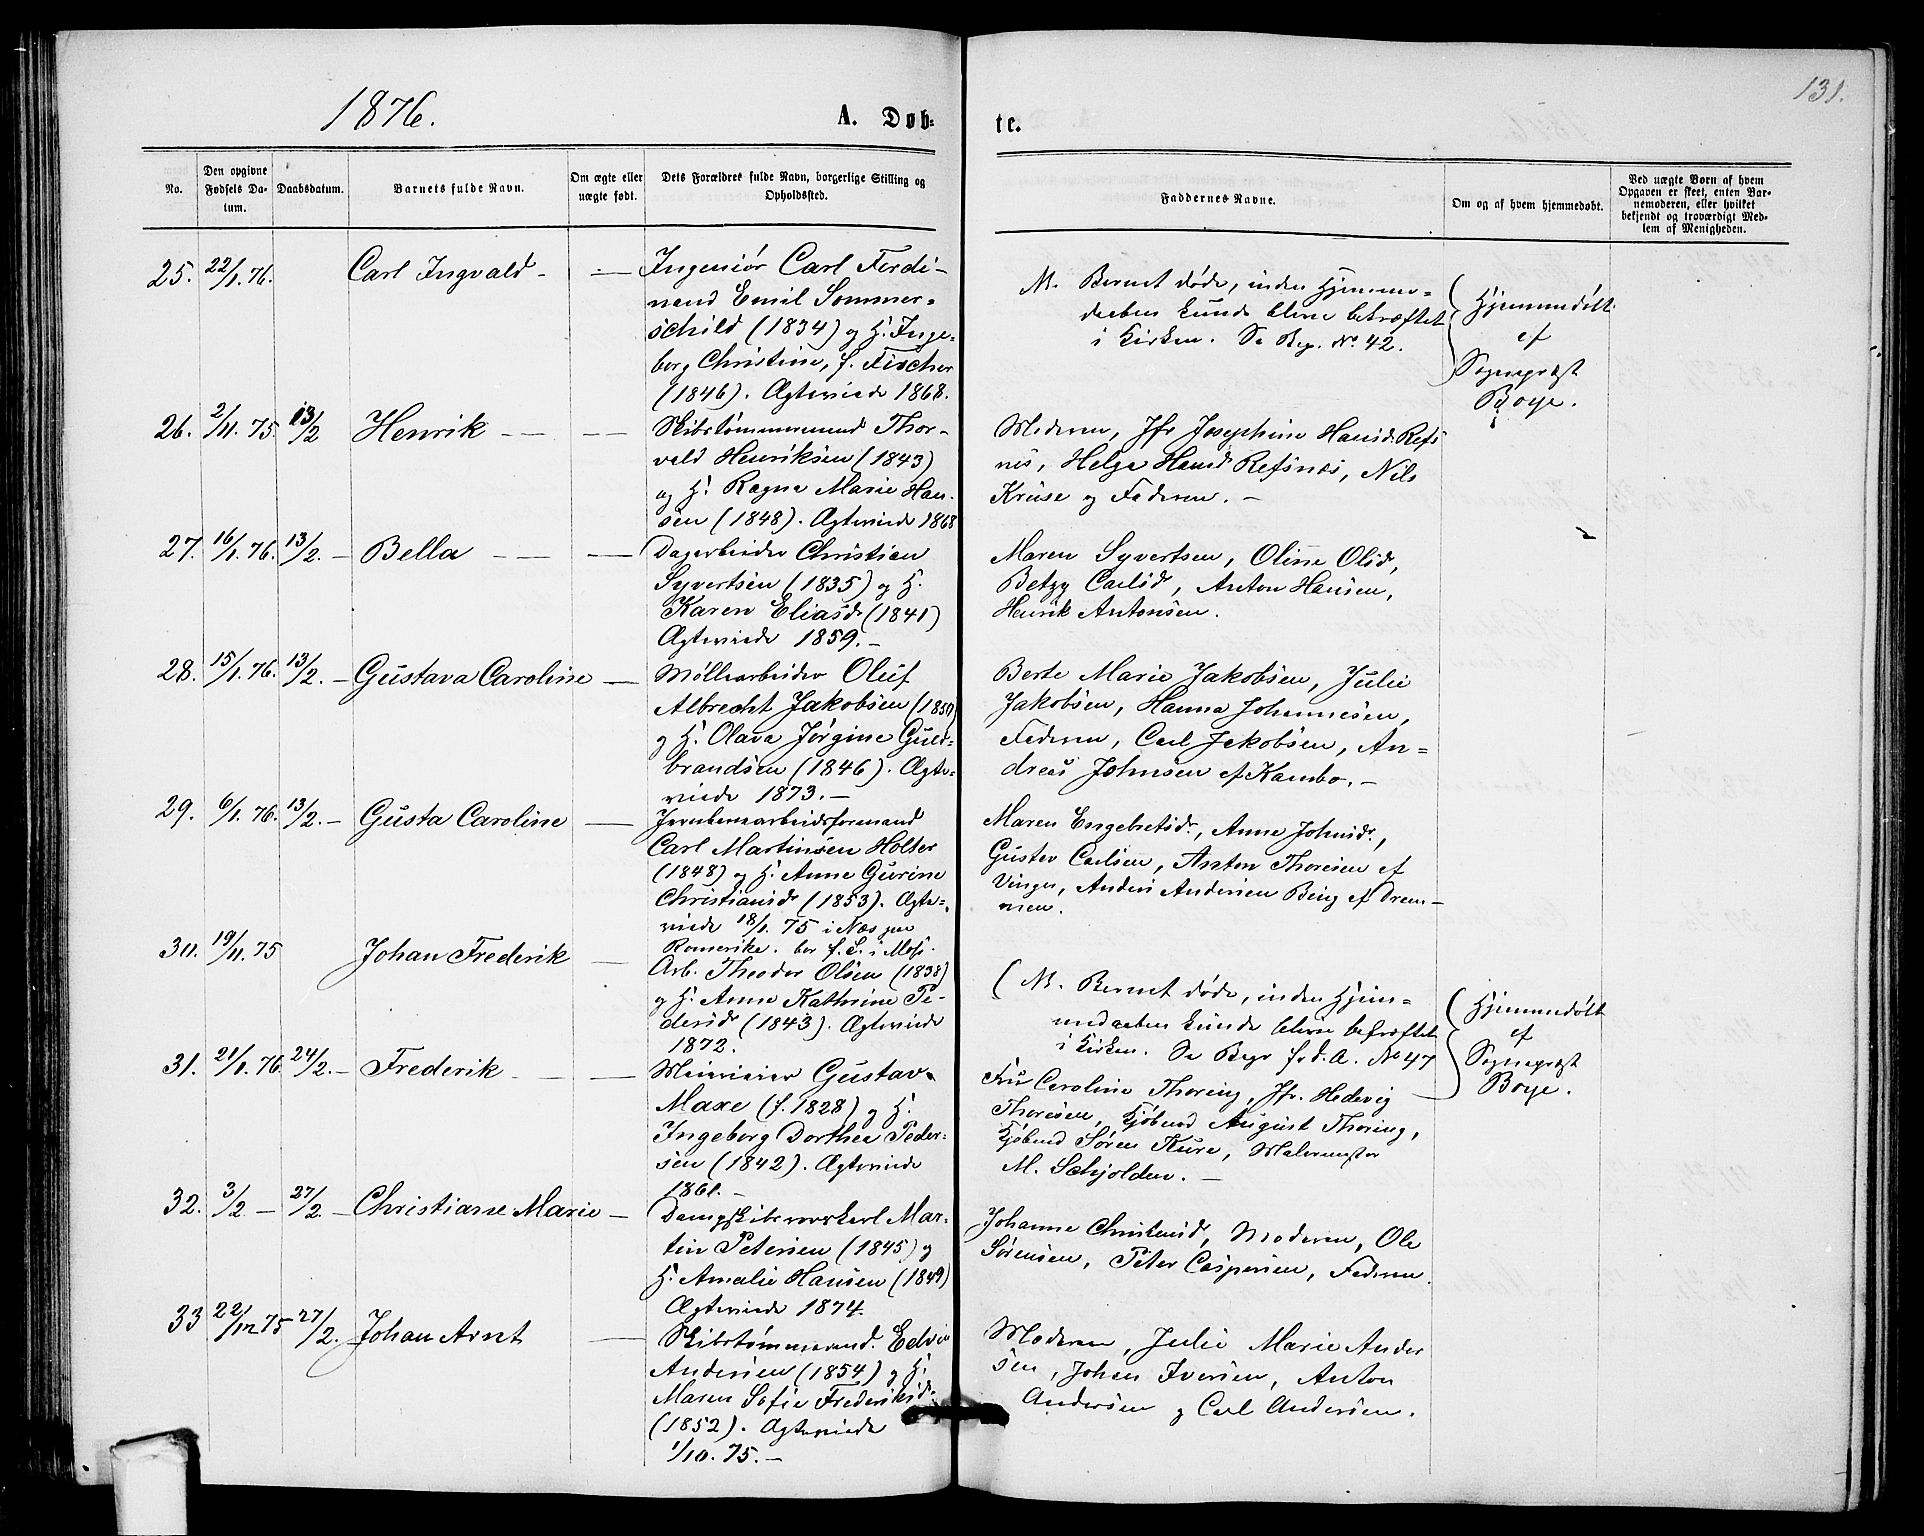 131.
1876.
A. Døb-
te.
No.
Den opgivne Fødsels Da-
tum.
Daabsdatum.
Barnets fulde Navn.
Om ægte eller
uægte født.
Dets Forældres fulde Navn, borgerlige Stilling og
Opholdssted.
Faddernes Navne.
Om og af hvem hjemmedøbt.
Ved uægte Børn af hvem
Opgaven er skeet, enten Bar-
nemoderen, eller hvilket
bekjendt og troværdigt Med-
lem af Menigheden.
25. 22/1. 76. Carl Ingvald - — Ingeniør Carl Ferdi-
nand Emil Sommer-
schild (1834) og H. Inge-
borg Christine, f. Fischer
(1846). Ægteviede 1868.
M. Barnet døde, inden Hjemme-
daaben kunde blive bekræftet
i Kirken. Se Reg. No. 42.
Hjemmedøbt
af
Sognepræst
Boye.
26. 2/11. 75 13/2 Henrik — — Skibstømmermand Thor-
vald Henriksen (1843)
og H. Ragna Marie Han-
sen (1848). Ægteviede 1868
Moderen, Jfr Josephine Hansd. Refs
nes, Helga Hansd Refsnæs, Nils
Kruse og Faderen. -
27. 16/1. 76. 13/2. - Bella — — Dagarbeider Christian
Syvertsen (1835) og H.
Karen Eliasd (1841)
Ægteviede 1859. -
Maren Syvertsen, Oline Olsd,
Betzy Carlsd, Anton Hansen,
Henrik Antonsen.
28. 15/1. 76. 13/2. - Gustava Caroline — Møllearbeider Oluf
Albrecht Jakobsen (1850)
og H. Olava Jørgine Guld-
brandsen (1846). Ægte-
viede 1873. -
Berte Marie Jakobsen, Julie
Jakobsen, Hanna Johannesen,
Faderen, Carl Jakobsen, An-
dreas Johnsen af Kambo. -
29. 6/1. 76. 13/2. - Gusta Caroline — Jernbanearbeidsformand
Carl Martinsen Holter
(1848) og H. Anne Gurine
Christiansd (1853). Ægte-
viede 18/1. 75 i Næs paa
Romerike. bor f. T. i Moss.
Maren Engebretsd., Anne Johnsd.,
Gustav Carlsen, Anton Thoresen af
Vinger, Anders Andersen Berg af Dram-
men.
30. 19/11. 75 Johan Frederik — Arb. Theodor Olsen (1838)
og H. Anne Kathrine Pe-
dersd (1843). Ægteviede
1872.
M. Barnet døde, inden Hjem-
medaaben kunde blive bekræftet
i Kirken. Se Begr. f. d. A. No 47
Hjemmedøbt
af
Sognepræst
Boye.
31. 21/1. 76 24/2. - Frederik - — Gustav
Maxe (f. 1828) og H.
Ingeborg Dorthea Peder-
sen (1842). Ægteviede
1861. -
Fru Caroline Thoring, Jfr. Hedevig
Thoresen, Kjøbmd August Thoring,
Kjøbmd Søren Kure, Malermester
M. Schjolden. -
32. 3/2 - 27/2. - Christiane Marie — Dampskibsmaskinkarl Mar-
tin Petersen (1845) og
H. Amalie Hansen (1849)
Ægteviede 1874.
Johanne Christensd, Moderen, Ole
Sørensen, Peter Caspersen, Faderen.
33 22/12 75 27/2. Johan Arnt — Skibstømmermand. Edvin
Andersen (1854) og H.
Maren Sofie Frederiksd.
(1852). Ægteviede
1/10. 75. -
Moderen, Julie Marie Ander
sen, Johan Iversen, Anton
Andersen og Carl Andersen.